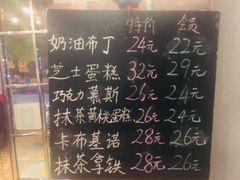 特价 会员
奶油布丁 24元 22元
芝士蛋糕 32元 29元
巧克力慕斯 25元 24元
抹茶蜜桃蛋糕 26元 24元
卡布基诺 28元 26元
抹茶拿铁 28元 26元